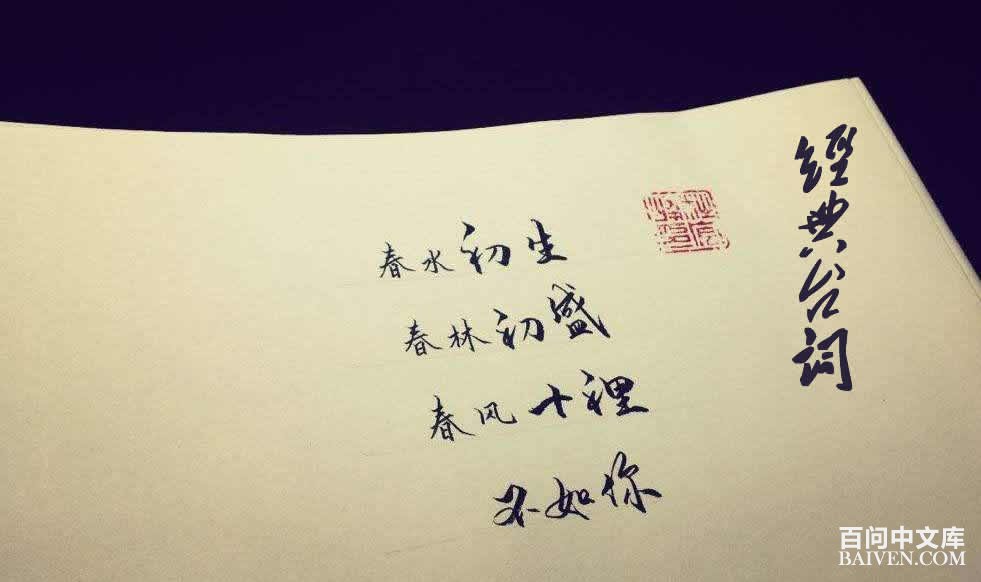 春水初生
春林初盛
春风十裡
不如你
經典台词
百问中文库
BAIVEN.COM